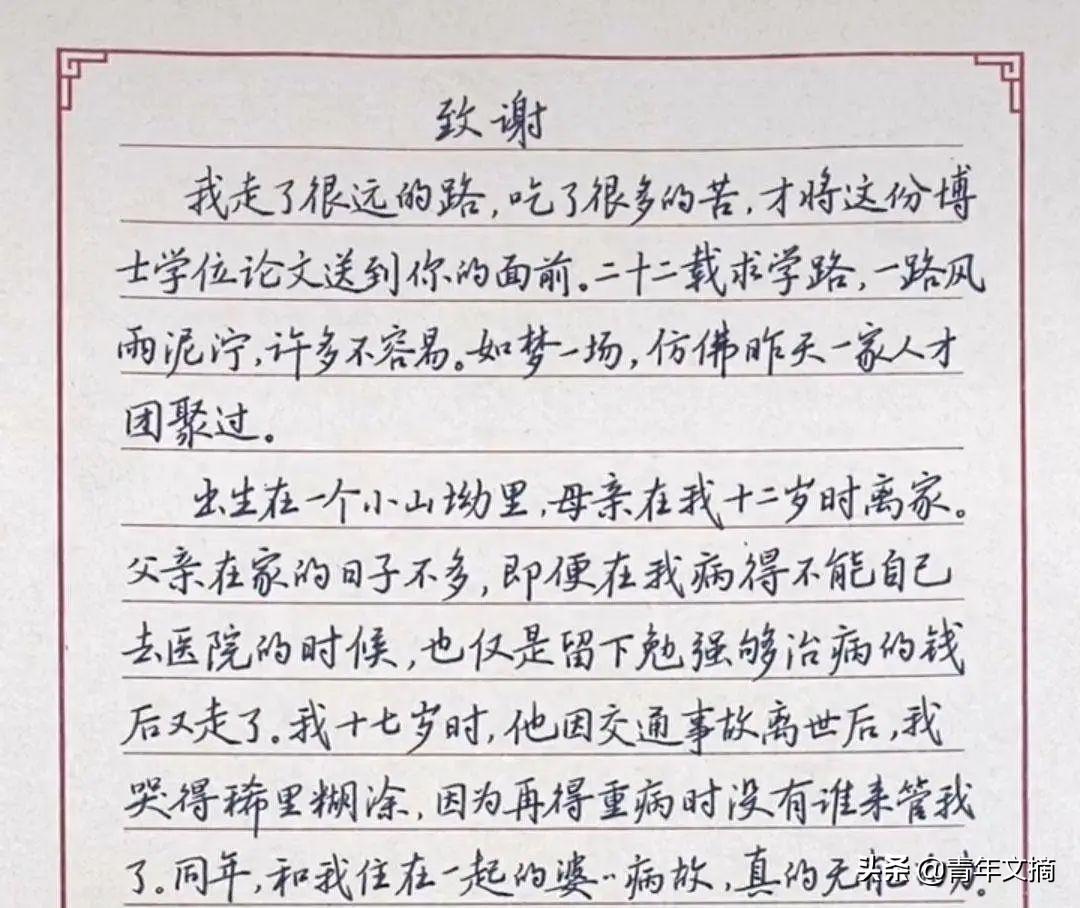 致谢
我走了很远的路，吃了很多的苦，才将这份博
士学位论文送到你的面前。二十二载求学路，一路风
雨泥泞，许多不容易。如梦一场，仿佛昨天一家人才
团聚过。
出生在一个小山坳里，母亲在我十二岁时离家。
父亲在家的日子不多，即便在我病得不能自己
去医院的时候，也仅是留下勉强够治病的钱
后又走了。我十七岁时，他因交通事故离世后，我
哭得稀里糊涂，因为再得重病时没有谁来管我
了。同年，和我住在一起的婆〃病故，真的无能
头条 @青年文摘